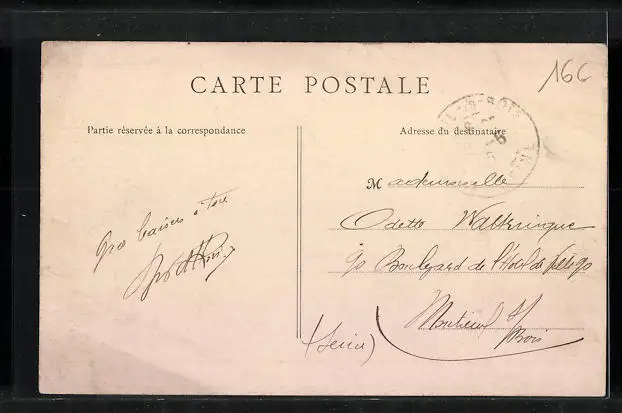 16C
CARTE POSTALE
Partie réservée à la correspondance
Adresse du destinataire
Gros baisers à tous
Mademoiselle
Odette
90 Boulevard de l'Hotel de Ville 90
Montreuil s/
Bois
(Seine)